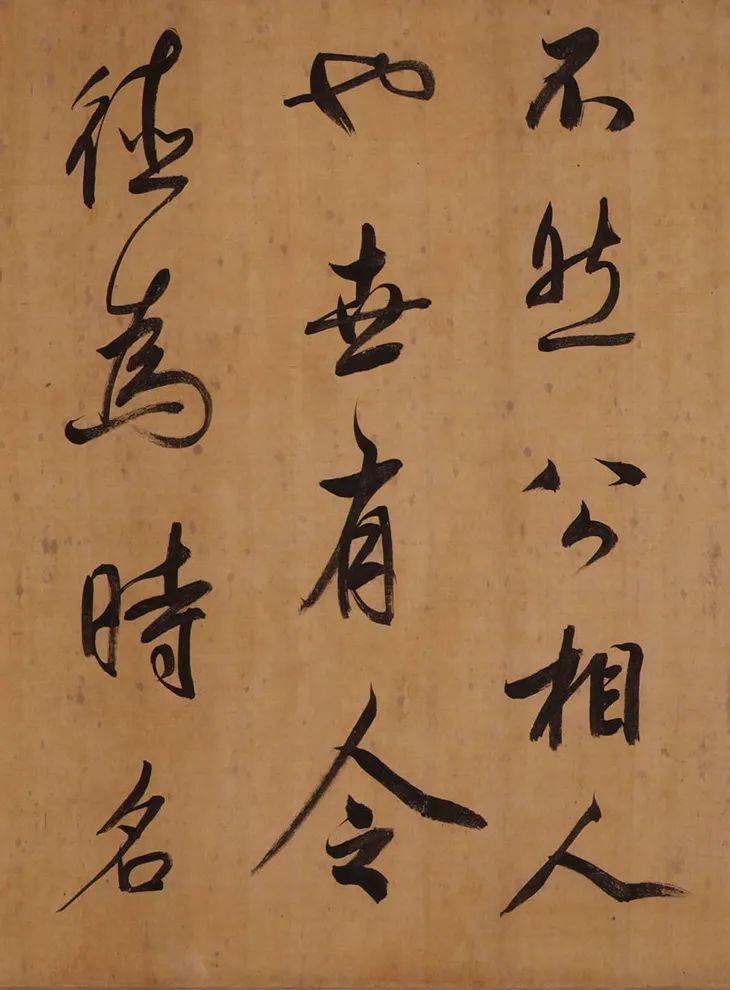 不然公相人
也世有令
德為時名